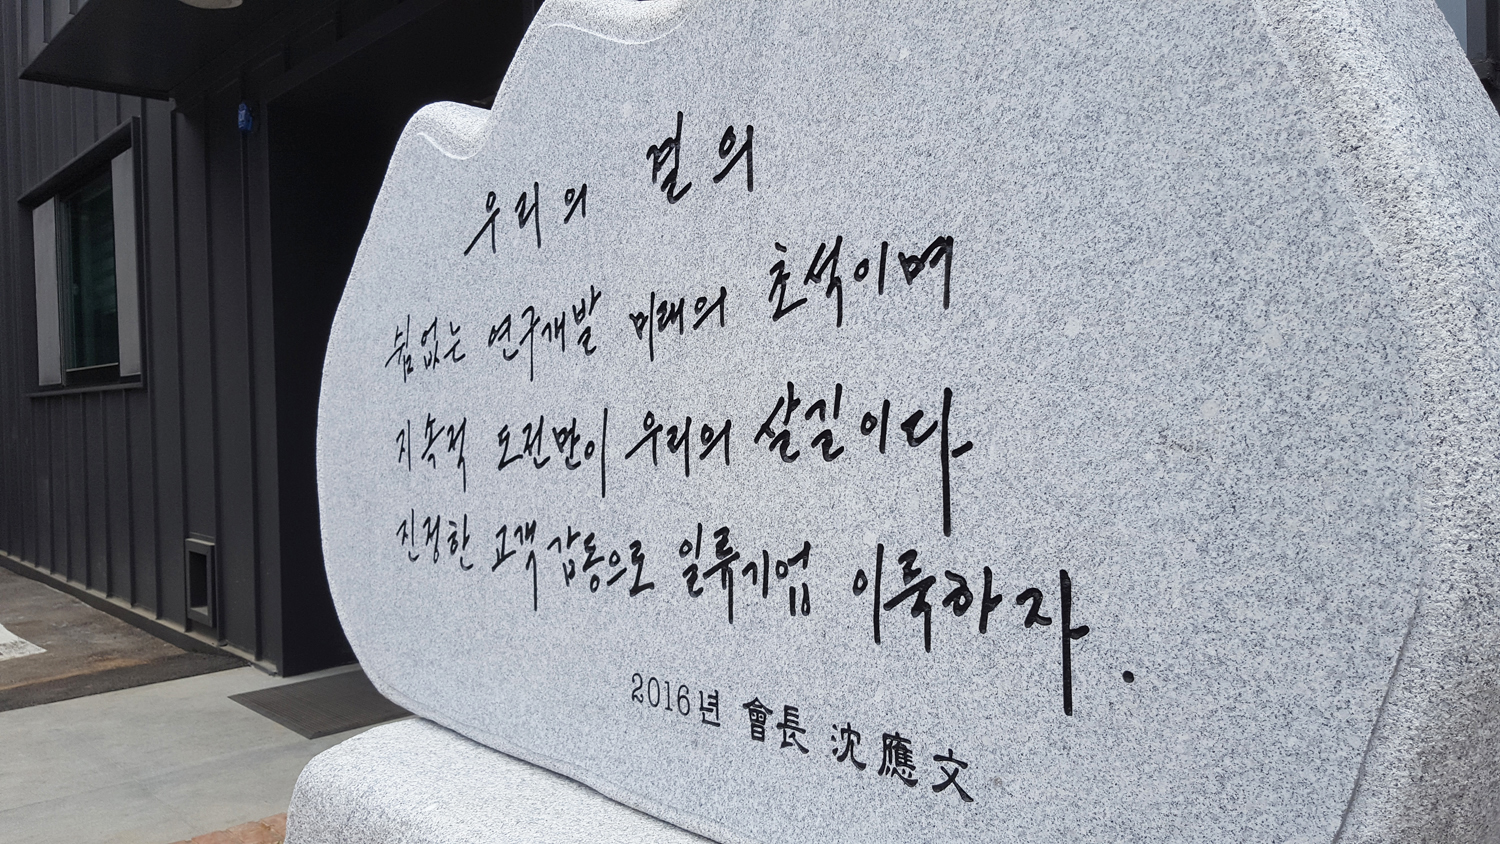 우리의 결의
쉼없는 연구개발 미래의 초석이며
지속적 도전만이 우리의 살길이다
진정한 고객감동으로 일류기업 이룩하자.
2016년 會長 沈應文